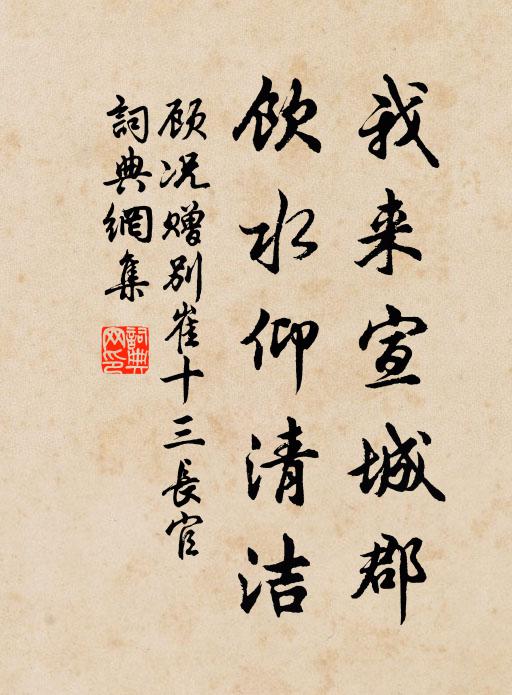 我来宣城郡
饮水仰清洁
顾况赠别崔十三長官
詞典網集
詞典
网印